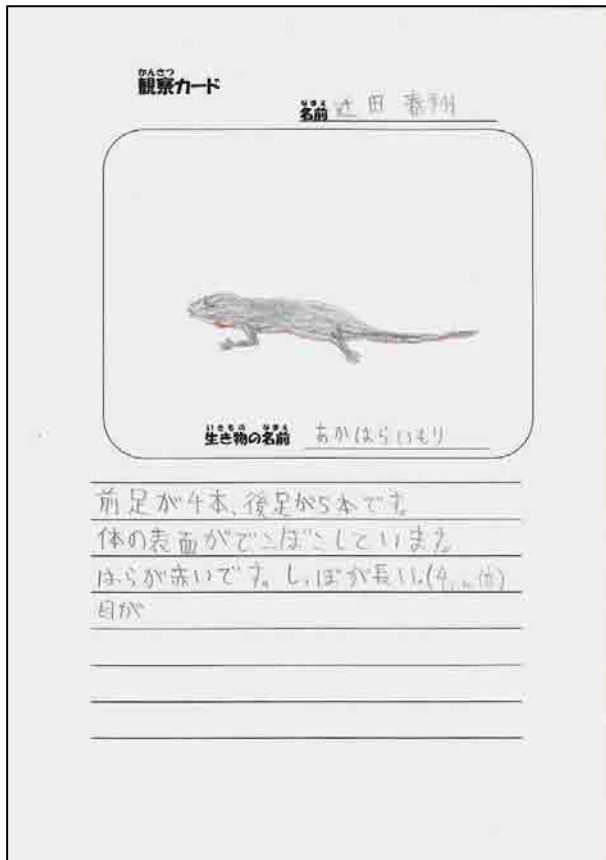 かんさつ
観察カード
なまえ
名前 辻田
いきもの なまえ
生き物の名前 あかはらいもり
前足が4本、後足が5本です。
体の表面がでこぼこしています。
はらが赤いです。しっぽが長い。
目が